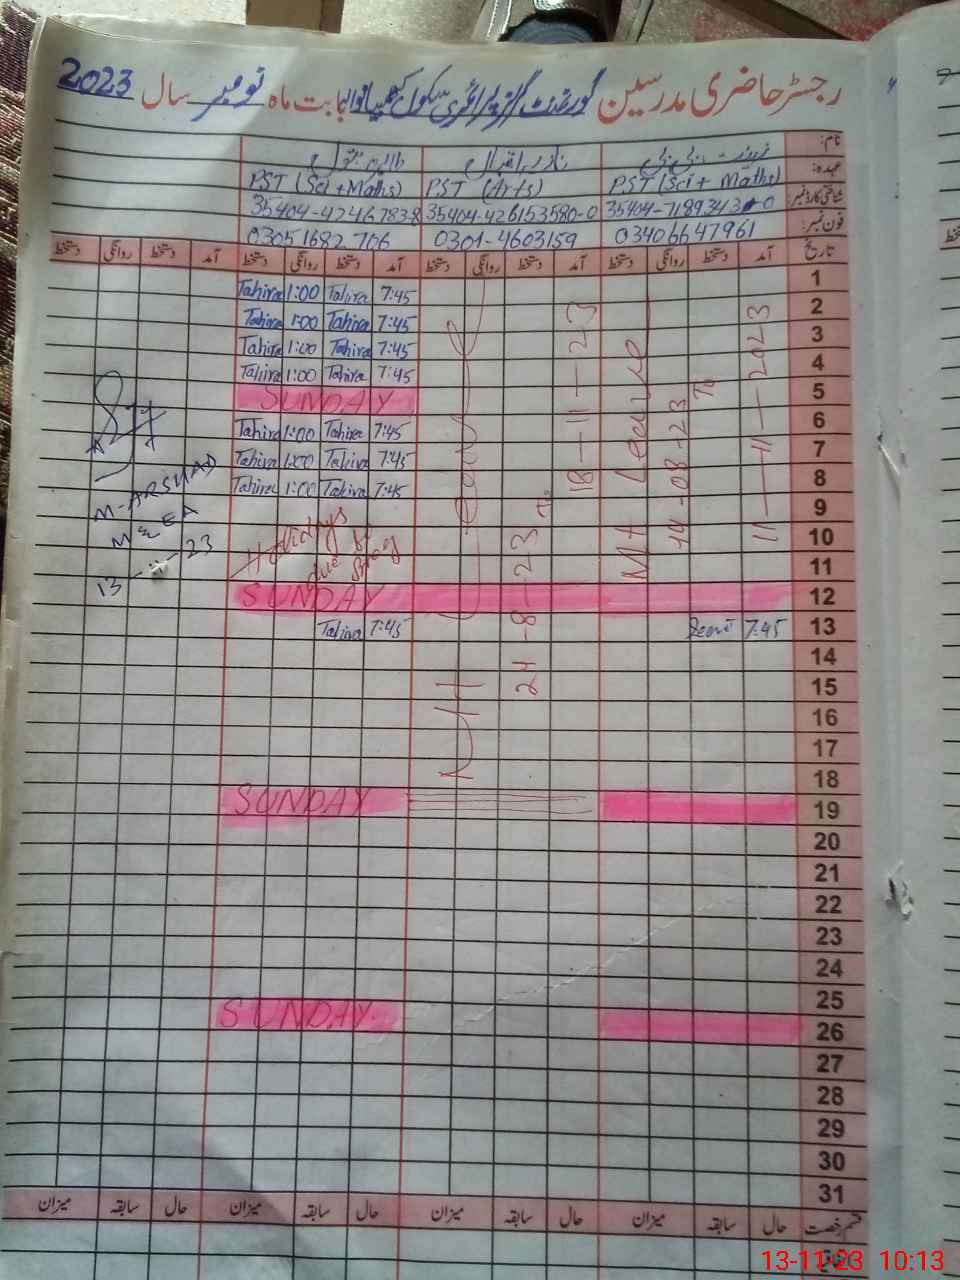 رجسٹر حاضری مدرسین گورنمنٹ گرلز پرائمری سکول بابت ماہ نومبر سال 2023
نام:
عہدہ: PST (Sci + Maths) PST (Arts) PST (Sci + Maths)
شناختی کارڈ نمبر: 35404-426153580-0 35404-4246783-8
فون نمبر: 03406647961 0301-4603159 03051682706
تاریخ آمد دستخط روانگی دستخط آمد دستخط روانگی دستخط آمد دستخط روانگی دستخط آمد دستخط روانگی دستخط
1 7:45 Tahira 1:00 Tahira
2 7:45 Tahira 1:00 Tahira
3 7:45 Tahira 1:00 Tahira
4 7:45 Tahira 1:00 Tahira
5 SUNDAY
6 7:45 Tahira 1:00 Tahira
7 7:45 Tahira 1:00 Tahira
8 7:45 Tahira 1:00 Tahira
9
10
11
Holidays
due to
Smog
12 SUNDAY
13 7:45 7:45 Tahira
14
15
16
17
18
19 SUNDAY
20
21
22
23
24
25
26 SUNDAY
27
28
29
30
31
Mt Leave
14-08-23 To
11-11-2023
Mt Leave
24-8-23 To
18-11-23
M-ARSHAD
M&EA
13-11-23
قسم رخصت حال سابقہ میزان حال سابقہ میزان حال سابقہ میزان حال سابقہ میزان
13-11-23 10:13